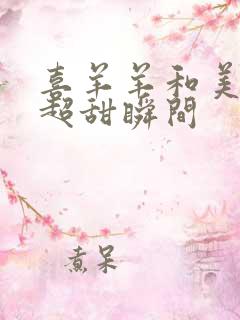 喜羊羊和美
超甜瞬間
煮呆